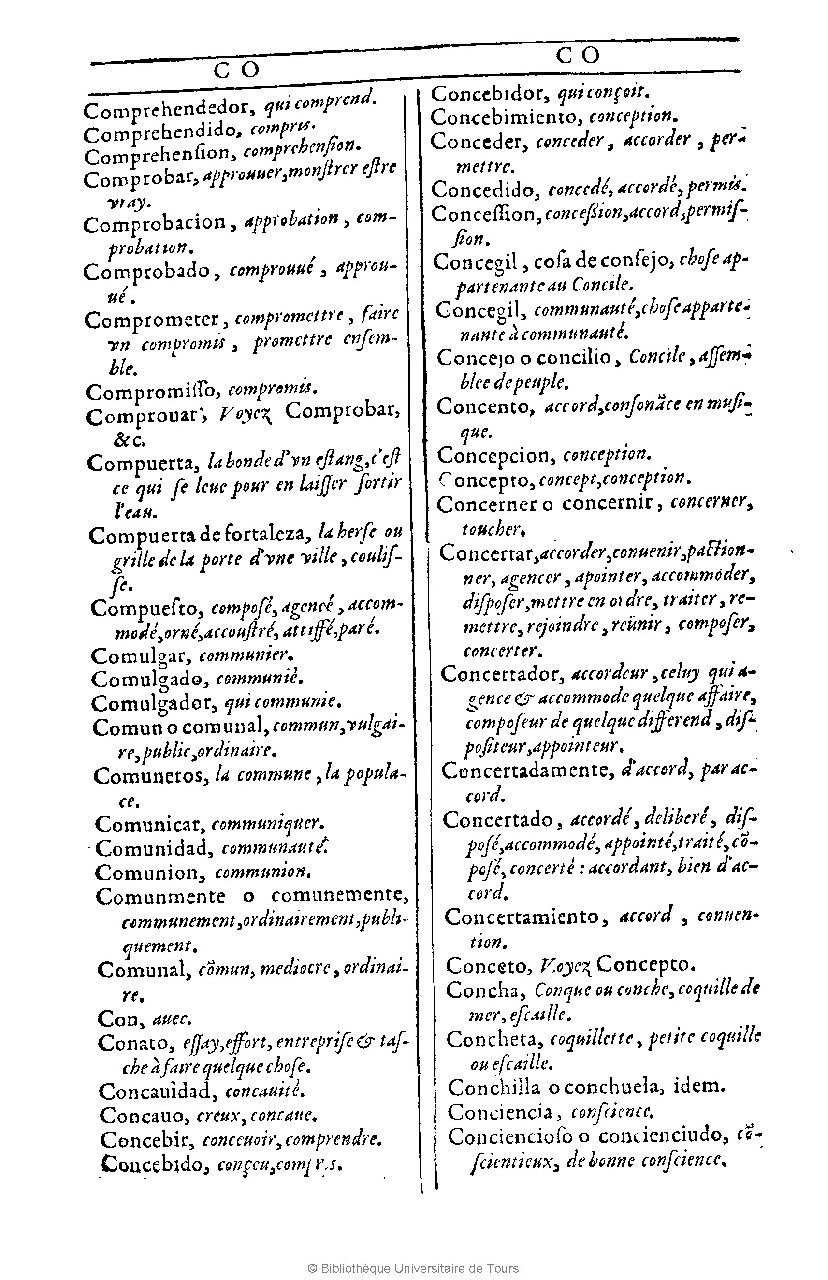 C O
Comprehendedor, qui comprend.
Comprehendido, compris.
Comprehenſion, comprehenſion.
Comprobar, approuuer, monſtrer eſtre
vray.
Comprobacion, approbation, com-
probation.
Comprobado, comprouué, approu-
ué.
Comprometer, compromettre, faire
vn compromis, promettre enſem-
ble.
Compromiſſo, compromis.
Comprouar, Voyez Comprobar,
&c.
Compuerta, la bonde d'vn eſtang, c'eſt
ce qui ſe leue pour en laiſſer ſortir
l'eau.
Compuerta de fortaleza, la herſe ou
grille de la porte d'vne ville, couliſ-
ſe.
Compueſto, compoſé, agencé, accom-
modé, orné, accouſtré, attiffé, paré.
Comulgar, communier.
Comulgado, communié.
Comulgador, qui communie.
Comun o comunal, commun, vulgai-
re, public, ordinaire.
Comuneros, la commune, la popula-
ce.
Comunicar, communiquer.
Comunidad, communauté.
Comunion, communion.
Comunmente o comunemente,
communement, ordinairement, publi-
quement.
Comunal, cõmun, mediocre, ordinai-
re.
Con, auec.
Conato, eſſay, effort, entrepriſe & taſ-
che à faire quelque choſe.
Concauidad, concauité.
Concauo, creux, concaue.
Concebir, conceuoir, comprendre.
Concebido, conçeu, compris.
C O
Concebidor, qui conçoit.
Concebimiento, conception.
Conceder, conceder, accorder, per-
mettre.
Concedido, concedé, accordé, permis.
Conceſſion, conceſſion, accord, permiſ-
ſion.
Concegil, coſa de conſejo, choſe ap-
partenante au Concile.
Concegil, communauté, choſe apparte-
nante à communauté.
Concejo o concilio, Concile, aſſem-
blee de peuple.
Concento, accord, conſonãce en muſi-
que.
Concepcion, conception.
Concepto, concept, conception.
Concerner o concernir, concerner,
toucher.
Concertar, accorder, conuenir, paction-
ner, agencer, apointer, accommoder,
diſpoſer, mettre en ordre, traiter, re-
mettre, rejoindre, reünir, compoſer,
concerter.
Concertador, accordeur, celuy qui a-
gence & accommode quelque affaire,
compoſeur de quelque differend, diſ-
poſiteur, appointeur.
Concertadamente, d'accord, par ac-
cord.
Concertado, accordé, deliberé, diſ-
poſé, accommodé, appointé, traité, cõ-
poſé, concerté : accordant, bien d'ac-
cord.
Concertamiento, accord, conuen-
tion.
Conceto, Voyez Concepto.
Concha, Conque ou conche, coquille de
mer, eſcaille.
Concheta, coquillette, petite coquille
ou eſcaille.
Conchilla o conchuela, idem.
Conciencia, conſcience.
Conciencioſo o concienciudo, cõ-
ſcientieux, de bonne conſcience.
© Bibliothèque Universitaire de Tours